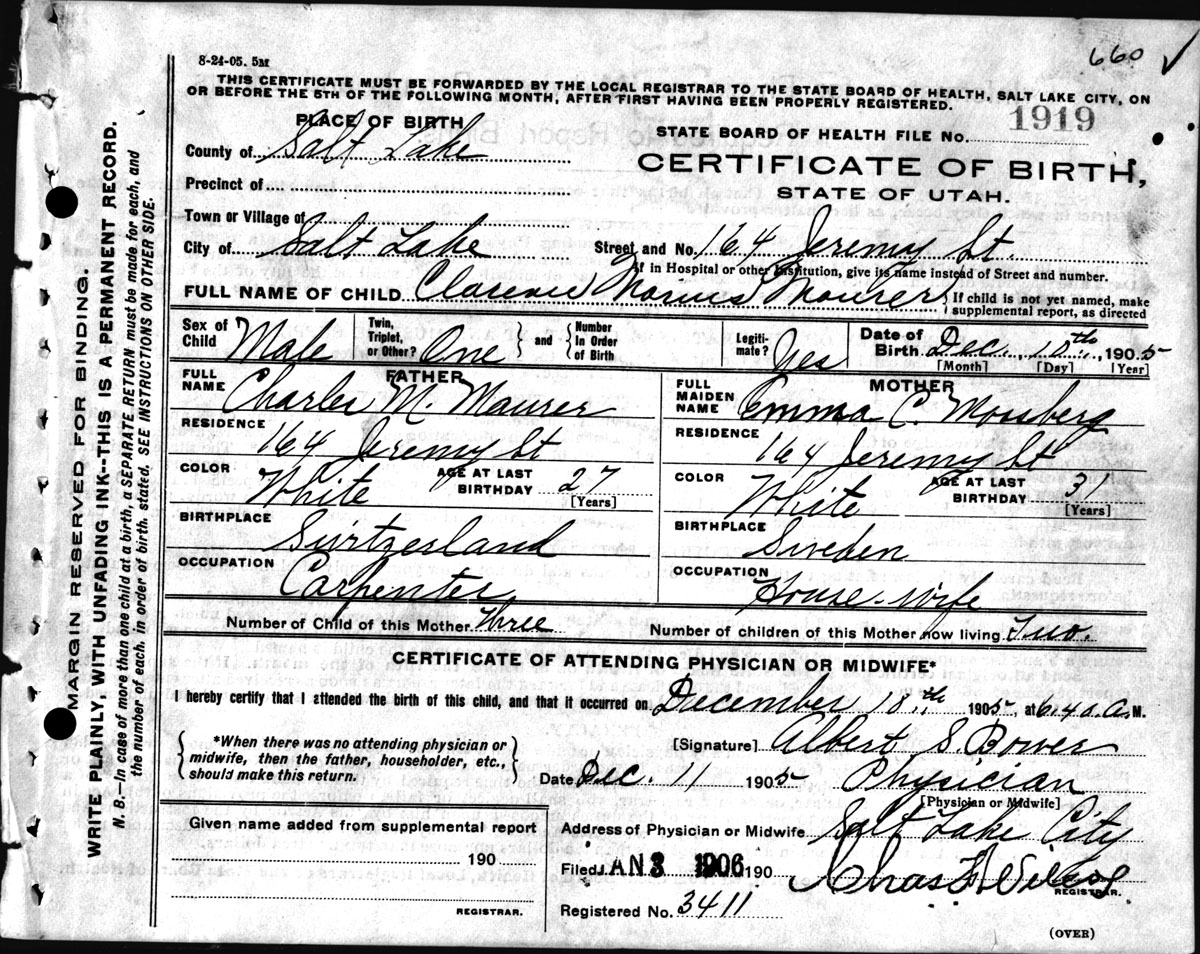 660 ✓
8-24-05. 5M
THIS CERTIFICATE MUST BE FORWARDED BY THE LOCAL REGISTRAR TO THE STATE BOARD OF HEALTH, SALT LAKE CITY, ON
OR BEFORE THE 5TH OF THE FOLLOWING MONTH, AFTER FIRST HAVING BEEN PROPERLY REGISTERED.
PLACE OF BIRTH
STATE BOARD OF HEALTH FILE No. 1919
County of Salt Lake
CERTIFICATE OF BIRTH,
STATE OF UTAH.
Precinct of
Town or Village of
City of Salt Lake Street and No. 164 Jeremy St.
If in Hospital or other Institution, give its name instead of Street and number.
FULL NAME OF CHILD Clarence Morius Maurer { If child is not yet named, make supplemental report, as directed
Sex of Child Male Twin, Triplet, or Other? One and { Number In Order of Birth Legiti-mate? Yes Date of Birth Dec. 10th, 1905
[Month] [Day] [Year]
FATHER MOTHER
FULL NAME Charles M. Maurer FULL MAIDEN NAME Emma C. Mossberg
RESIDENCE 164 Jeremy St RESIDENCE 164 Jeremy St
COLOR White AGE AT LAST BIRTHDAY 27 [Years] COLOR White AGE AT LAST BIRTHDAY 31 [Years]
BIRTHPLACE Switzerland BIRTHPLACE Sweden
OCCUPATION Carpenter OCCUPATION House-wife
Number of Child of this Mother Three Number of children of this Mother now living Two.
CERTIFICATE OF ATTENDING PHYSICIAN OR MIDWIFE*
I hereby certify that I attended the birth of this child, and that it occurred on December 10th 1905, at 6.40 A.M.
{ *When there was no attending physician or midwife, then the father, householder, etc., should make this return. }
[Signature] Albert S. Bower
Date Dec. 11 1905 Physician
[Physician or Midwife]
Given name added from supplemental report
190
REGISTRAR.
Address of Physician or Midwife Salt Lake City
Filed JAN 3 1906 190
REGISTRAR.
Registered No. 3411
(OVER)
MARGIN RESERVED FOR BINDING.
WRITE PLAINLY, WITH UNFADING INK--THIS IS A PERMANENT RECORD.
N. B.—In case of more than one child at a birth, a SEPARATE RETURN must be made for each, and
the number of each, in order of birth, stated. SEE INSTRUCTIONS ON OTHER SIDE.